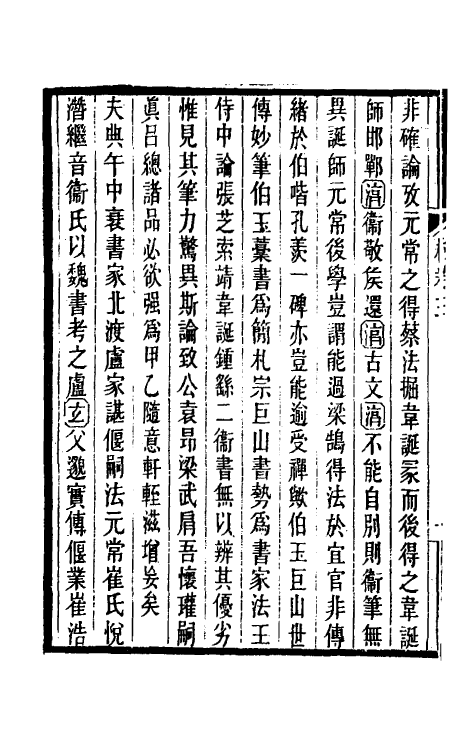 非確論攷元常之得蔡法掘韋誕冢而後得之韋誕
師邯鄲淳衞敬矦還淳古文淳不能自別則衞筆無
異誕師元常後學豈謂能過梁鵠得法於宜官非傳
緒於伯喈孔羨一碑亦豈能逾受禪歟伯玉巨山世
傳妙筆伯玉藁書爲簡札宗巨山書勢爲書家法王
侍中論張芝索靖韋誕鍾繇二衞書無以辨其優劣
惟見其筆力驚異斯論致公袁昂梁武肩吾懷瓘嗣
眞呂總諸品必欲强爲甲乙隨意軒輊滋增妄矣
夫典午中衰書家北渡盧家諶偃嗣法元常崔氏悅
潛繼音衞氏以魏書考之盧玄父邈實傳偃業崔浩